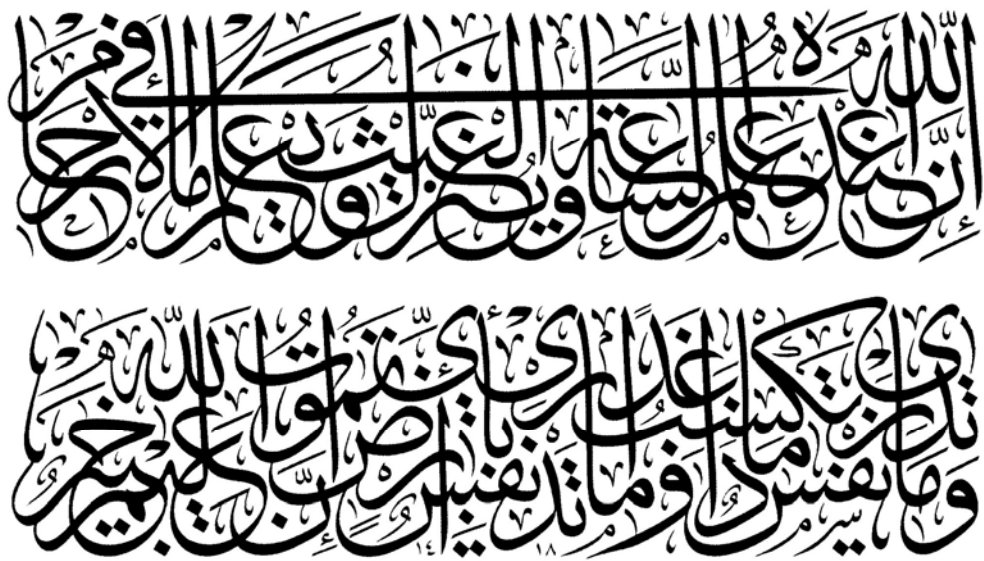 إِنَّ اللَّهَ عِنْدَهُ عِلْمُ السَّاعَةِ وَيُنَزِّلُ الْغَيْثَ وَيَعْلَمُ مَا فِي الْأَرْحَامِ
وَمَا تَدْرِي نَفْسٌ مَاذَا تَكْسِبُ غَدًا وَمَا تَدْرِي نَفْسٌ بِأَيِّ أَرْضٍ تَمُوتُ إِنَّ اللَّهَ عَلِيمٌ خَبِيرٌ